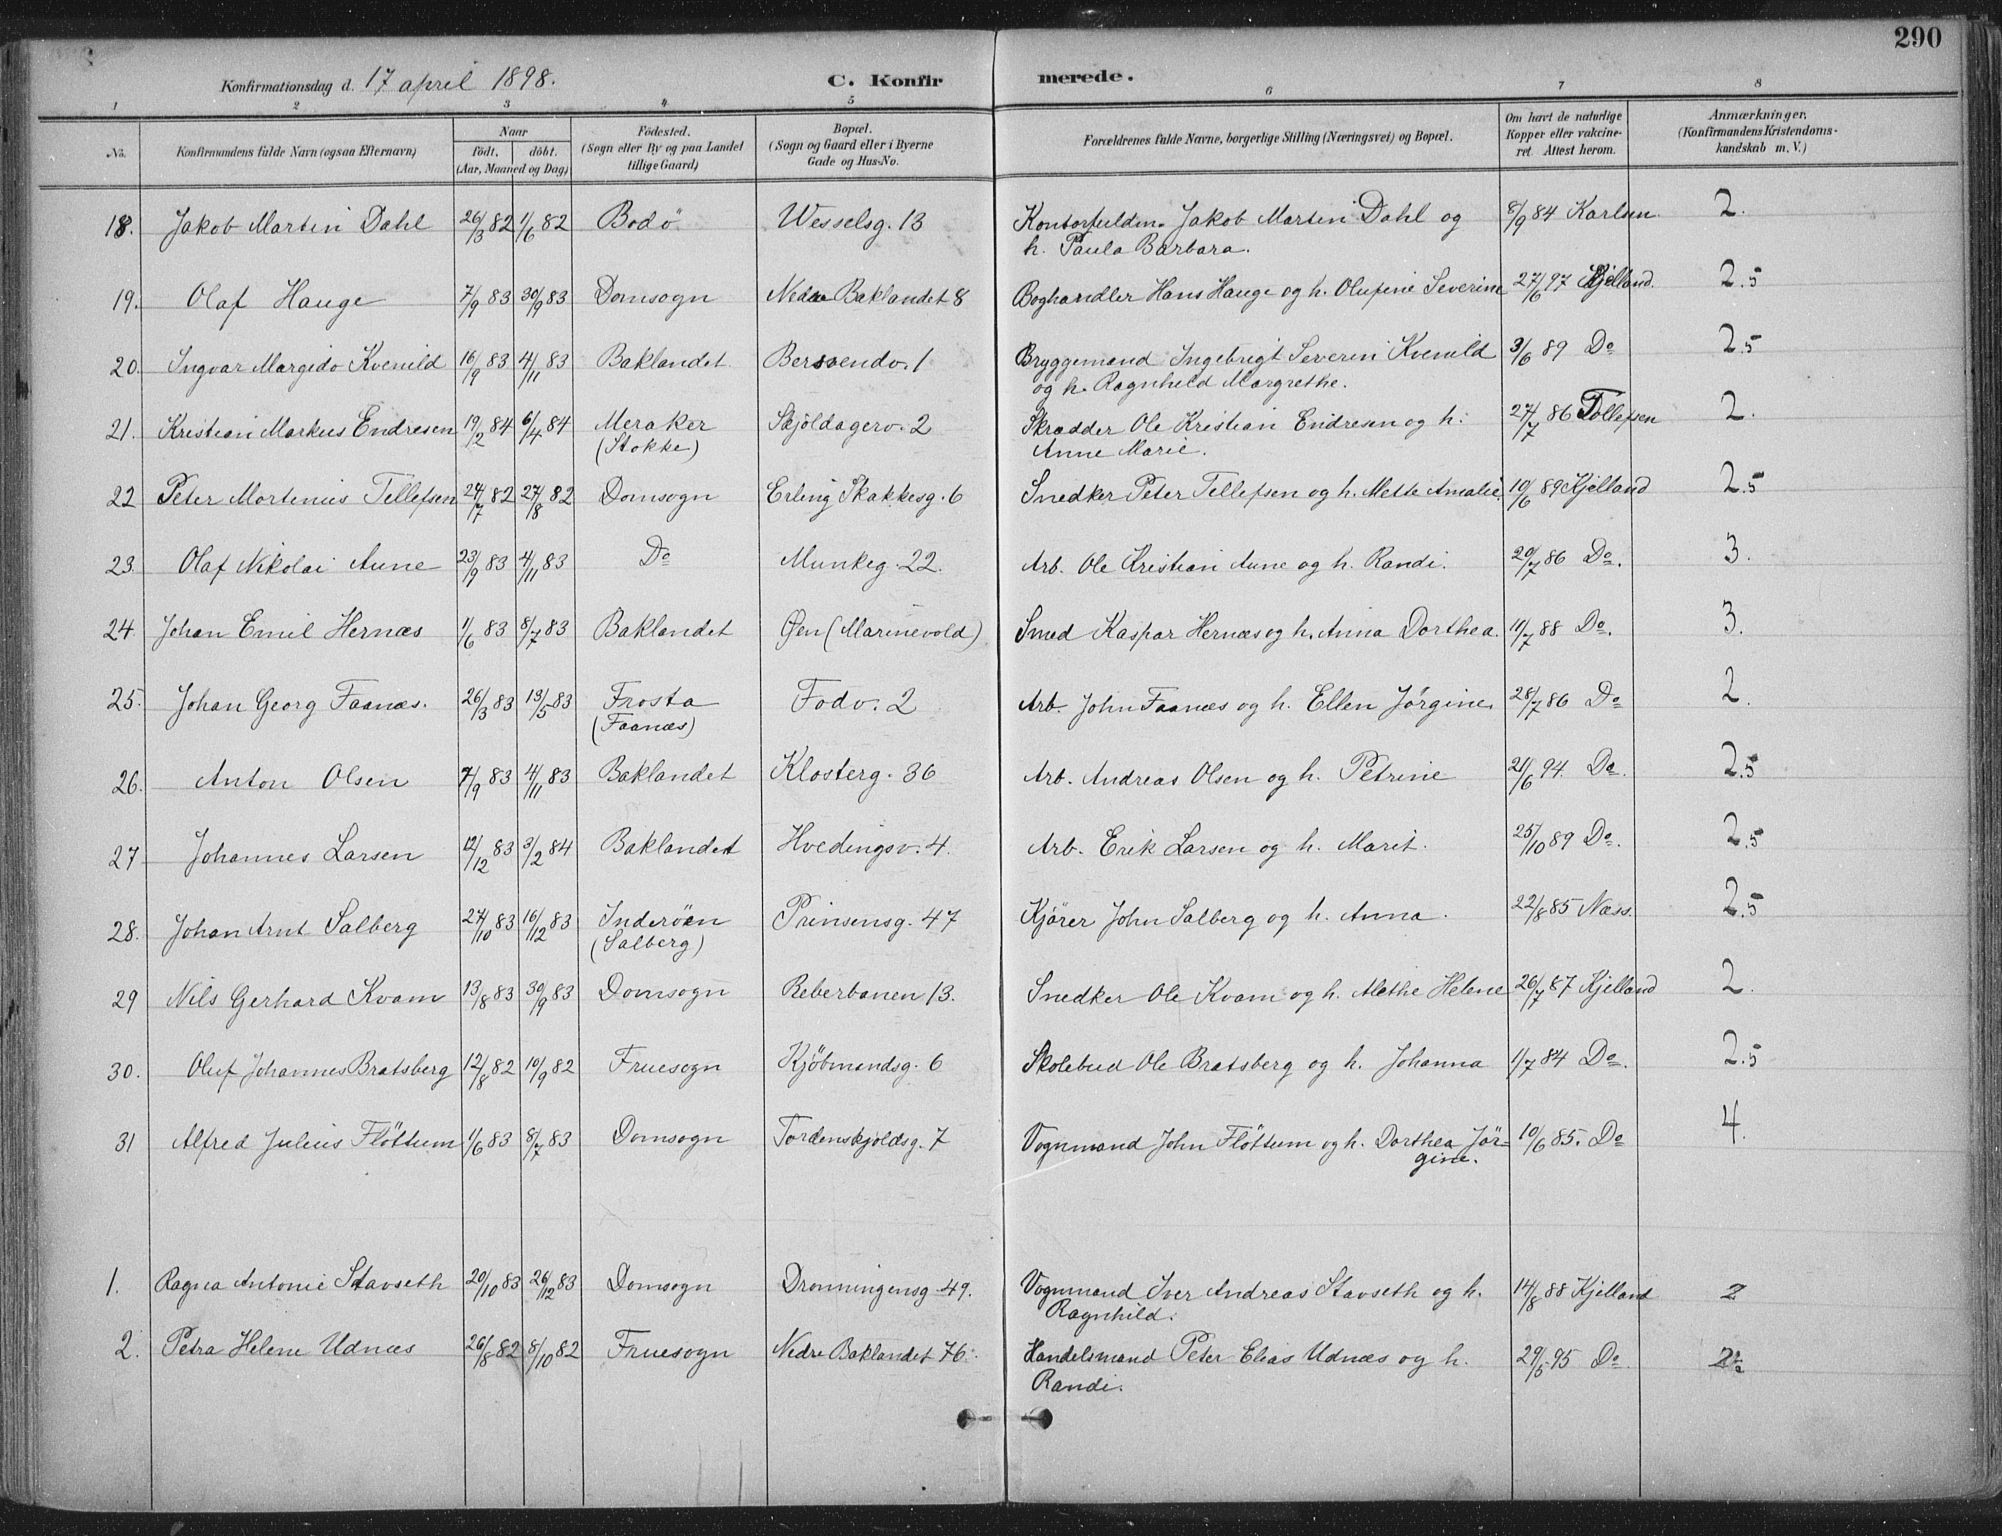 290
Konfirmationsdag d. 17 april 1898. C. Konfirmerede.
1 2 3 4 5 6 7 8
No. Konfirmandens fulde Navn (ogsaa Efternavn) Naar født, døbt. (Aar, Maaned og Dag) Fødested. (Sogn eller By og paa Landet tillige Gaard) Bopæl. (Sogn og Gaard eller i Byerne Gade og Hus-No. Forældrenes fulde Navne, borgerlige Stilling (Næringsvei) og Bopæl. Om havt de naturlige Kopper eller vakcineret. Attest herom. Anmærkninger. (Konfirmandens Kristendomskundskab m. V.)
18. Jakob Martin Dahl 26/3 82 1/6 82 Bodö Wesselsg. 13 Jakob Martin Dahl og 8/9 84 Karlsen 2.
h. Paula Barbara.
19. Olaf Hauge 7/9 83 30/9 83 Domsogn Nedre Baklandet 8 Boghandler Hans Hauge og h. Olufine Severine 27/6 97 Kjelland. 2.5
20. Ingvar Margido Kvenild 16/9 83 4/11 83 Baklandet Bersvendv. 1 Bryggemand Ingebrigt Severin Kvenild 3/6 89 Do 2.5
og h. Ragnhild Margrethe.
21. Kristian Markus Endresen 19/2 84 6/4 84 Meraker Skjöldagerv. 2 Skrædder Ole Kristian Endresen og h. 27/7 86 Tollefsen 2.
(Stokke) Anne Marie.
22 Peter Martenius Tellefsen 24/7 82 27/8 82 Domsogn Erling Skakkesg. 6 Snedker Peter Tellefsen og h. Mette Amalie. 10/6 89 Kjelland 2.5
23. Olaf Nikolai Aune 23/9 83 4/11 83 Do Munkeg. 22. Arb. Ole Kristian Aune og h. Randi. 20/7 86 Do. 3.
24. Johan Emil Hernæs 1/6 83 8/7 83 Baklandet Øen (Marinevold) Smed Kaspar Hernæs og h. Anna Dorthea. 11/7 88 Do. 3.
25. Johan Georg Faanæs. 26/3 83 13/5 83 Frosta Fodv. 2 Arb. John Faanæs og h. Ellen Jørgine. 28/7 86 Do 2.
(Faanæs)
26. Anton Olsen 7/9 83 4/11 83 Baklandet Klosterg. 36 Arb. Andreas Olsen og h. Petrine 21/6 94. Do. 2.5
27 Johannes Larsen 12/12 83 3/2 84 Baklandet Hvedingsv. 4. Arb. Erik Larsen og h. Marit. 25/10 89 Do. 2.5
28. Johan Arnt Salberg 27/10 83 16/12 83 Inderöen Prinsensg. 47 Kjörer John Salberg og h. Anna. 22/8 85 Næss. 2.5
(Salberg)
29 Nils Gerhard Kvam 13/8 83 30/9 83 Domsogn Reberbanen 13. Snedker Ole Kvam og h. Alethe Helene 26/7 87 Kjelland 2.
30. Oluf Johannes Bratsberg 12/8 82 10/9 82 Fruesogn Kjöbmandsg. 6 Skolebud Ole Bratsberg og h. Johanna 1/7 84 Do. 2.5
31 Alfred Julius Flöttum 1/6 83 8/7 83 Domsogn Tordenskjoldsg. 7 Vognmand John Flöttum og h. Dorthea Jör- 10/6 85. Do 4.
gine.
1. Ragna Antonie Stavseth 20/10 83 26/12 83 Domsogn Dronningensg. 49. Vognmand Iver Andreas Stavseth og h. 14/8 88 Kjelland 2
Ragnhild.
2. Petra Helene Udnæs 26/8 82 8/10 82 Fruesogn Nedre Baklandet 76. Handelsmand Peter Elias Udnæs og h. 29/5 95 Do
Randi.